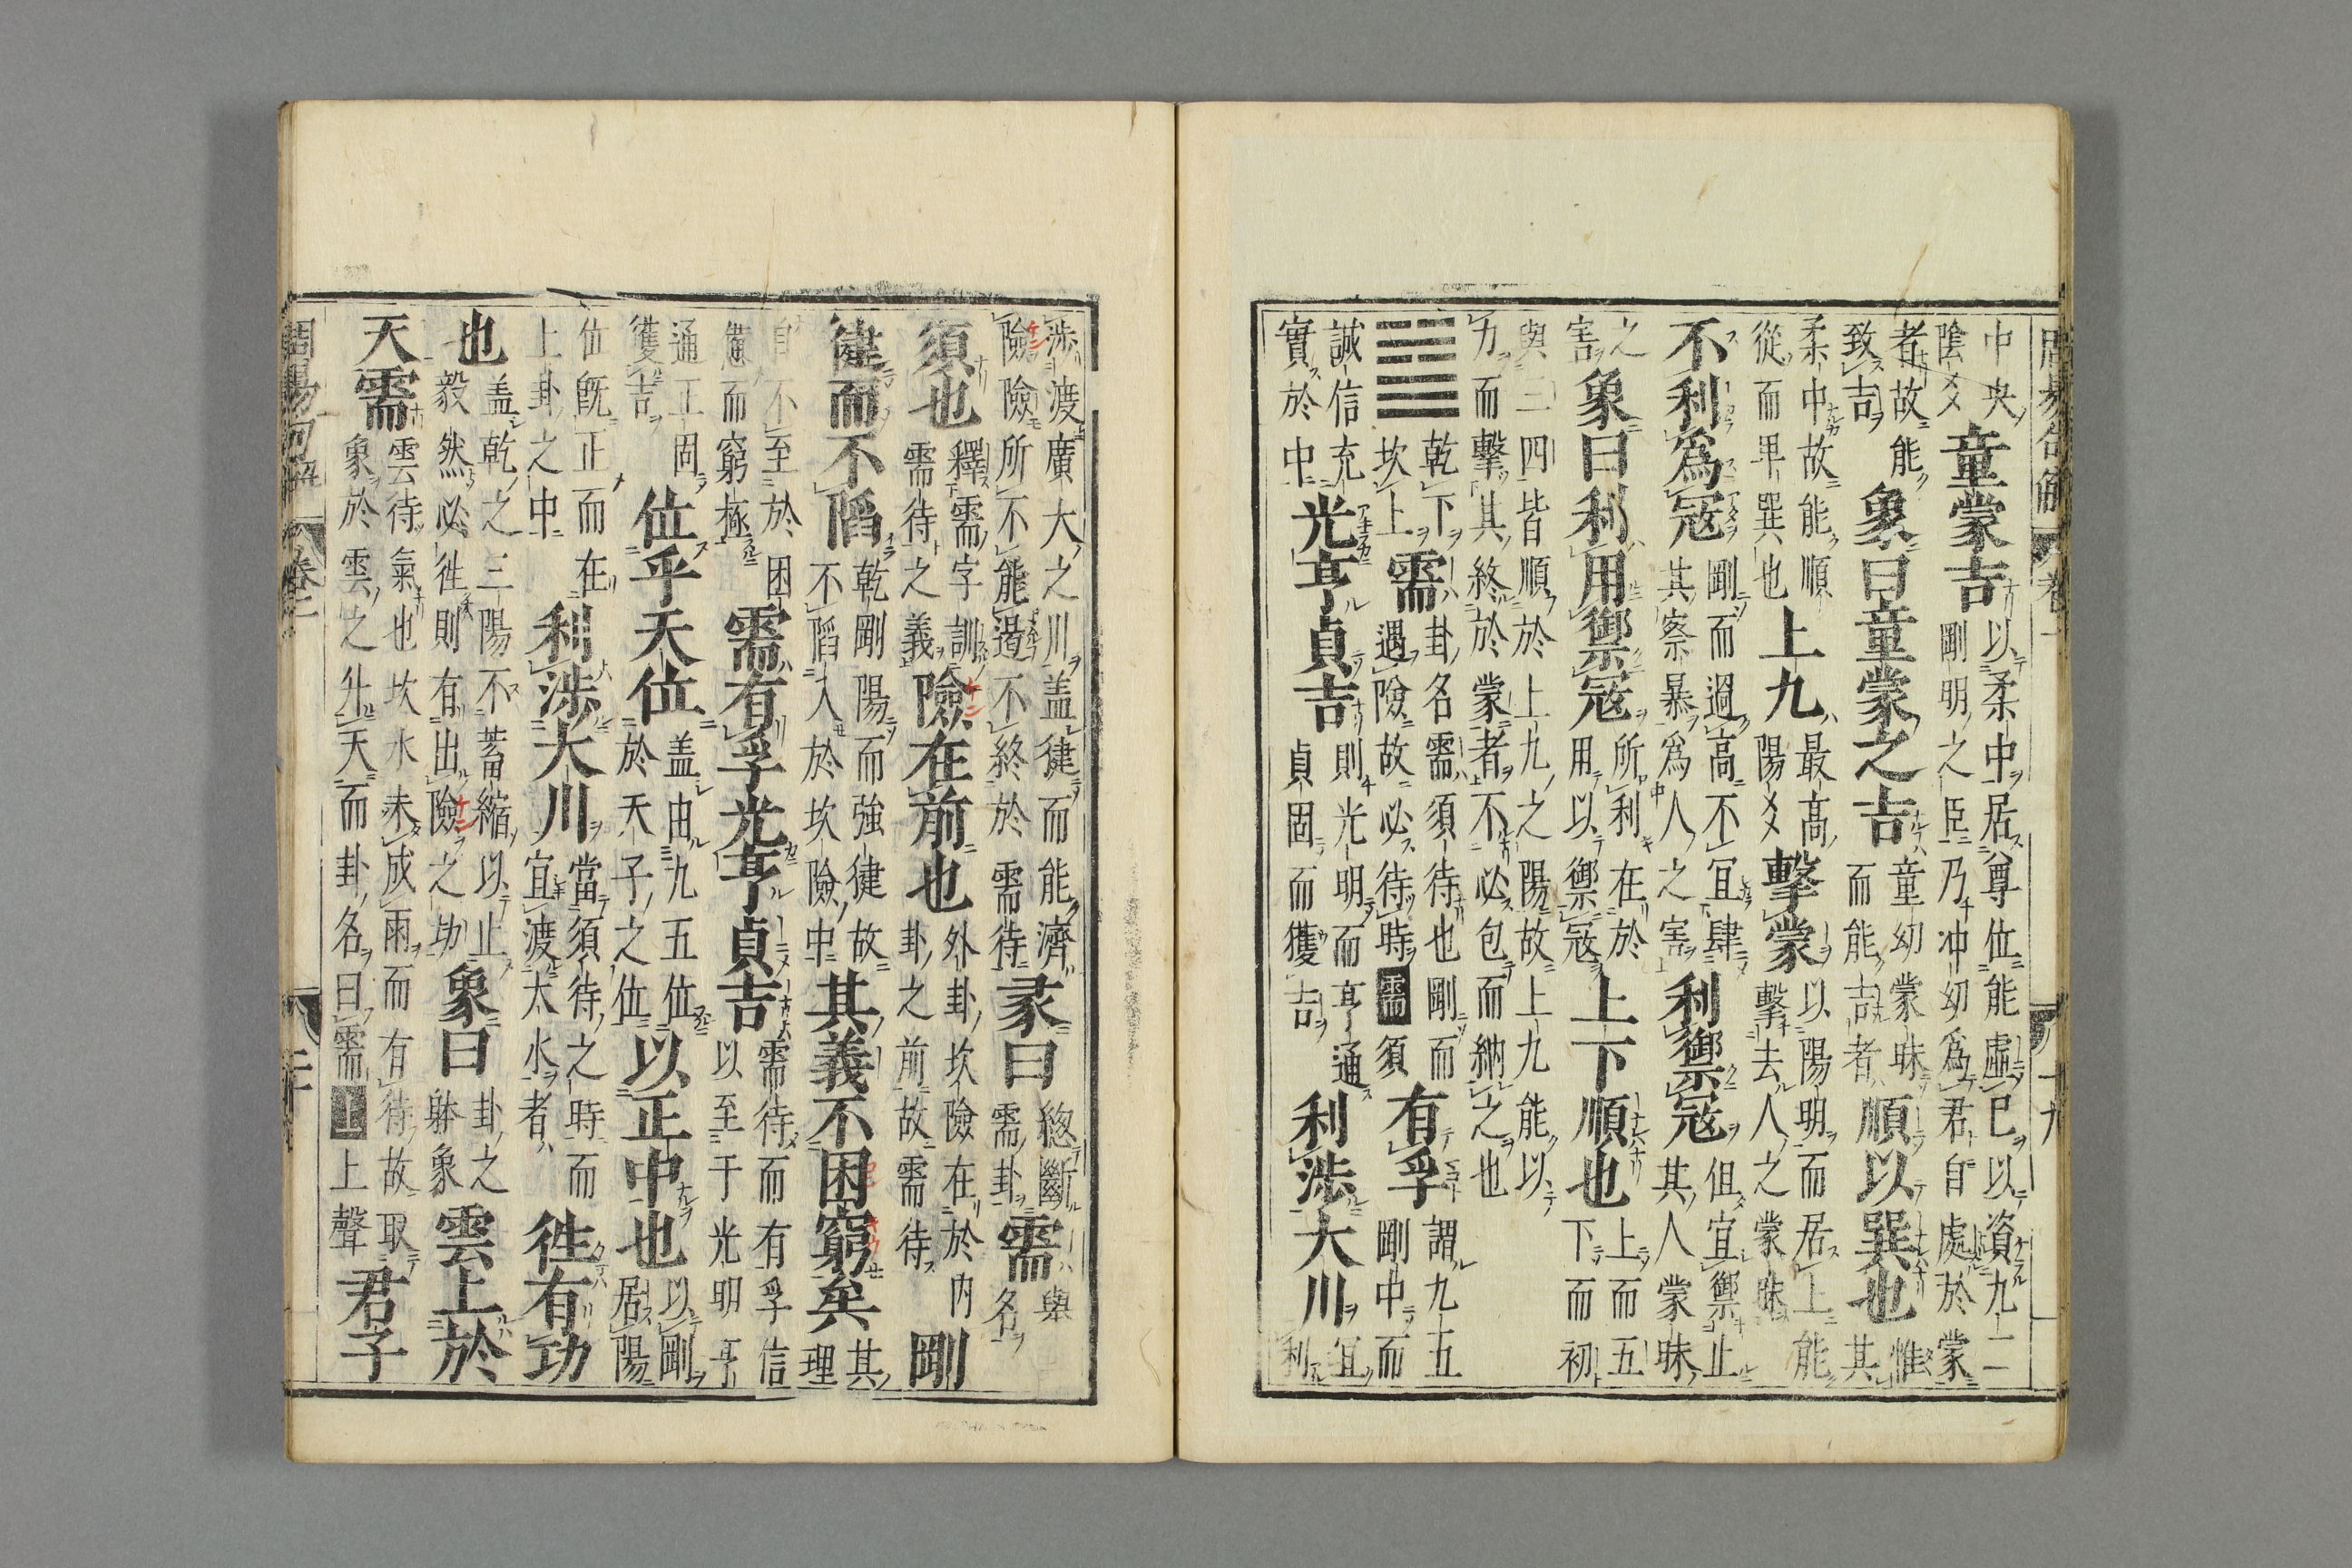 中央陰爻童蒙吉以柔中居尊位能虛己以資九二剛明之臣乃冲幼爲君自處於蒙
者故能致吉象曰童蒙之吉童幼蒙昧而能吉者順以巽也惟其
柔中故能順從而卑巽也上九最高陽爻擊蒙以陽明而居上能擊去人之蒙昧
不利爲冦剛而過高不宜肆其察暴爲人之害利禦冦但宜禦止其人蒙昧
之害象曰利用禦冦所利在於用以禦冦上下順也上而五下而初
與三四皆順於上九之陽故上九能以力而擊其終於蒙者不必包而納之也
䷄乾下坎上需卦名需須待也剛而遇險故必待時需須有孚謂九五剛中而
誠信充實於中光亨貞吉則光明而亨通貞固而獲吉利涉大川宜利
涉渡廣大之川盖健而能濟險險所不能過不終於需待彖曰總斷需卦需舉名
須也釋需字訓需待之義險在前也外卦坎險在於内卦之前故需待剛
健而不陷乾剛陽而強健故不陷入於坎險中其義不困窮矣其理
自不至於困憊而窮極需有孚光亨貞吉需待而有孚信以至于光明亨
通正固獲吉位乎天位盖由九五位於天子之位以正中也以剛居陽
位既正而在上卦之中利涉大川當須待之時而宜渡大水者往有功
也盖乾之三陽不蓄縮以止毅然必往則有出險之功象曰卦之躰象雲上於
天需雲待氣也坎水未成雨而有待故取象於雲之升天而卦名曰需上聲君子
周昜句解
卷二
二十
十九